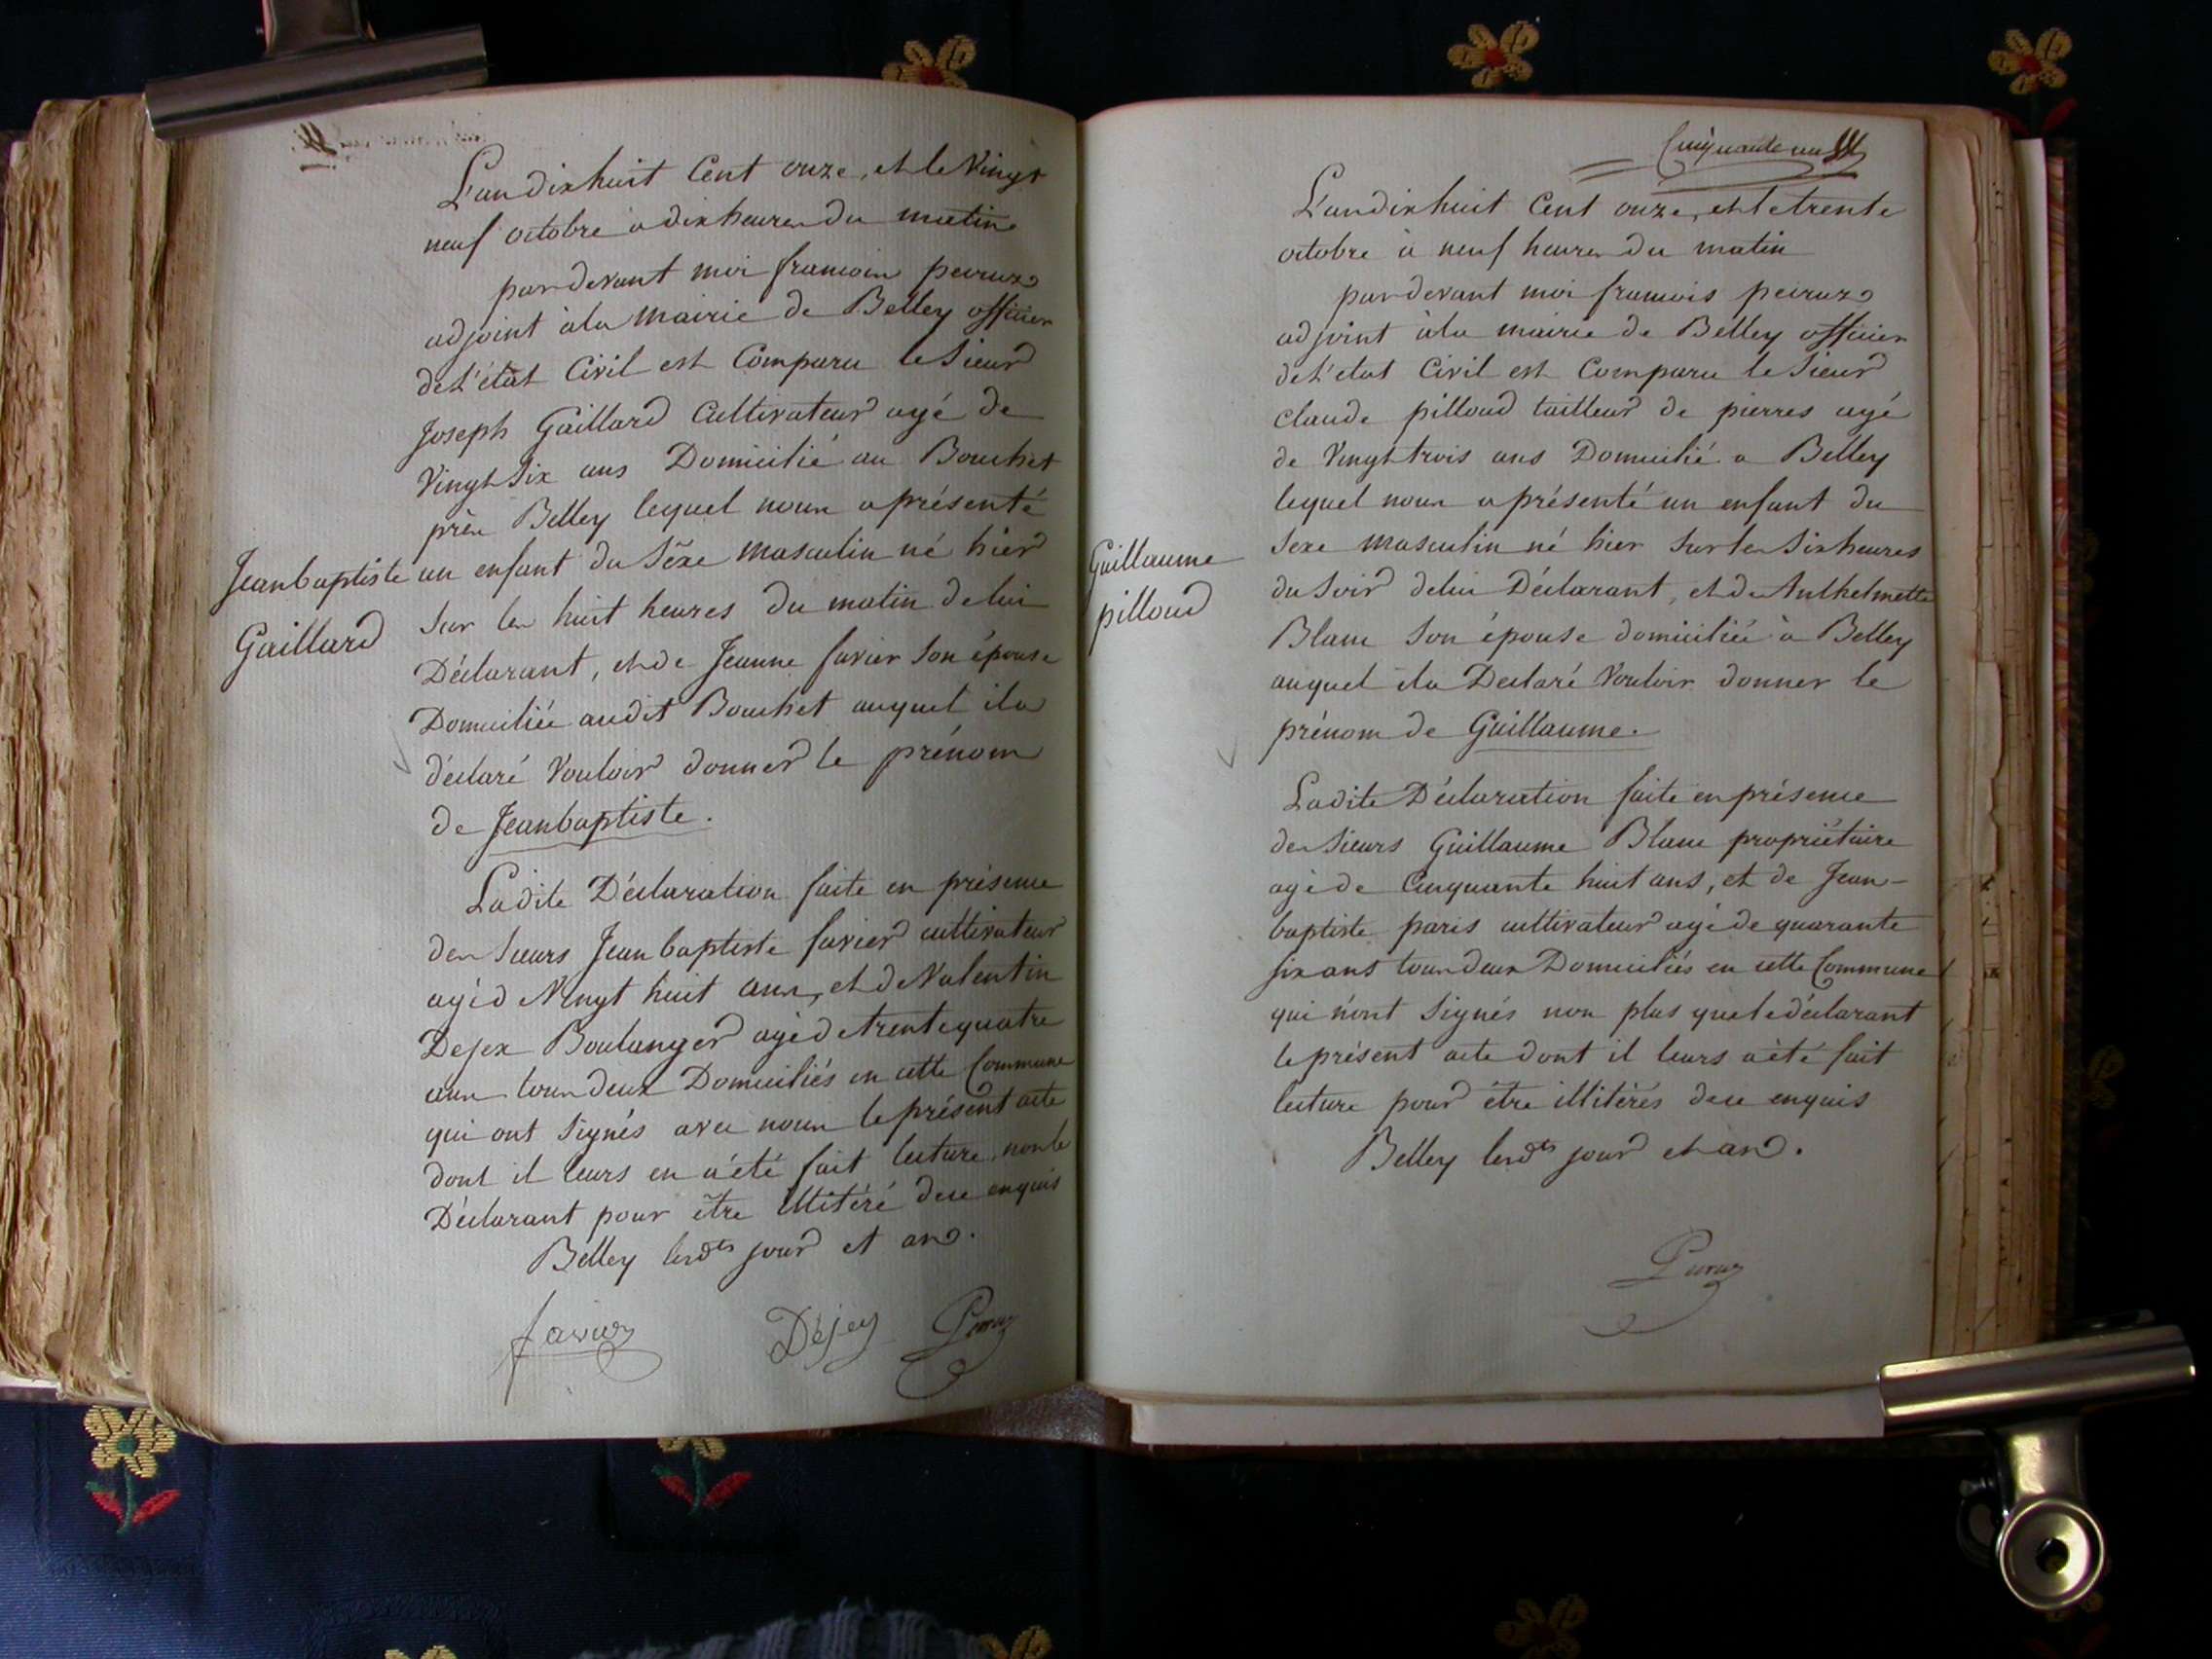 L'an dixhuit Cent onze, et le Vingt
neuf octobre à dix heures du matin
pardevant moi francois peiruz
adjoint àla mairie de Belley officier
de l'état Civil est Comparu le Sieur
Joseph Gaillard Cultivateur agé de
Vingt Six ans Domicilié au Bouchet
près Belley lequel nous a présenté
Jeanbaptiste
Gaillard
un enfant du Séxe masculin né hier
Sur les huit heures du matin de lui
Déclarant, et de Jeanne favier Son épouse
Domiciliée audit Bouchet auquel il a
déclaré Vouloir donner le prénom
de Jeanbaptiste.
Ladite Déclaration faite en présence
des Sieurs Jean baptiste favier cultivateur
agé de Vingt huit ans, et de Valentin
Dejex Boulanger agé de trente quatre
ans tous deux Domiciliés en cette Commune
qui ont Signés avec nous le présent acte
dont il leurs en a été fait lecture, non le
Déclarant pour être illitéré de ce enquis
Belley lesdts jour et an.
favier Déjey Peiruz
L'an dix huit Cent onze, et le trente
octobre à neuf heures du matin
pardevant moi francois peiruz
adjoint àla mairie de Belley officier
de l'etat Civil est Comparu le Sieur
claude pilloud tailleur de pierres agé
de Vingt trois ans Domicilié a Belley
lequel nous a présenté un enfant du
Guillaume
pilloud
Sexe masculin né hier Sur les Six heures
du Soir de lui Déclarant, et de Anthelmette
Blanc Son épouse domiciliée à Belley
auquel il a Declaré Vouloir donner le
prénom de Guillaume.
Ladite Déclaration faite en présence
des Sieurs Guillaume Blanc propriétaire
agé de Cinquante huit ans, et de Jean-
baptiste paris cultivateur agé de quarante
six ans tous deux Domiciliés en cette Commune
qui n'ont Signés non plus que le déclarant
le présent acte dont il leurs a été fait
lecture pour être illitérés de ce enquis
Belley lesdts jour et an.
Peiruz